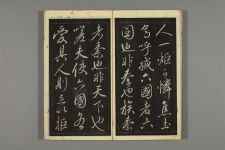 人一炬可憐焦土
嗚呼滅六國者六
國也非秦也族秦
者秦也非天下也
嗟夫使六國各
愛其人則足以拒